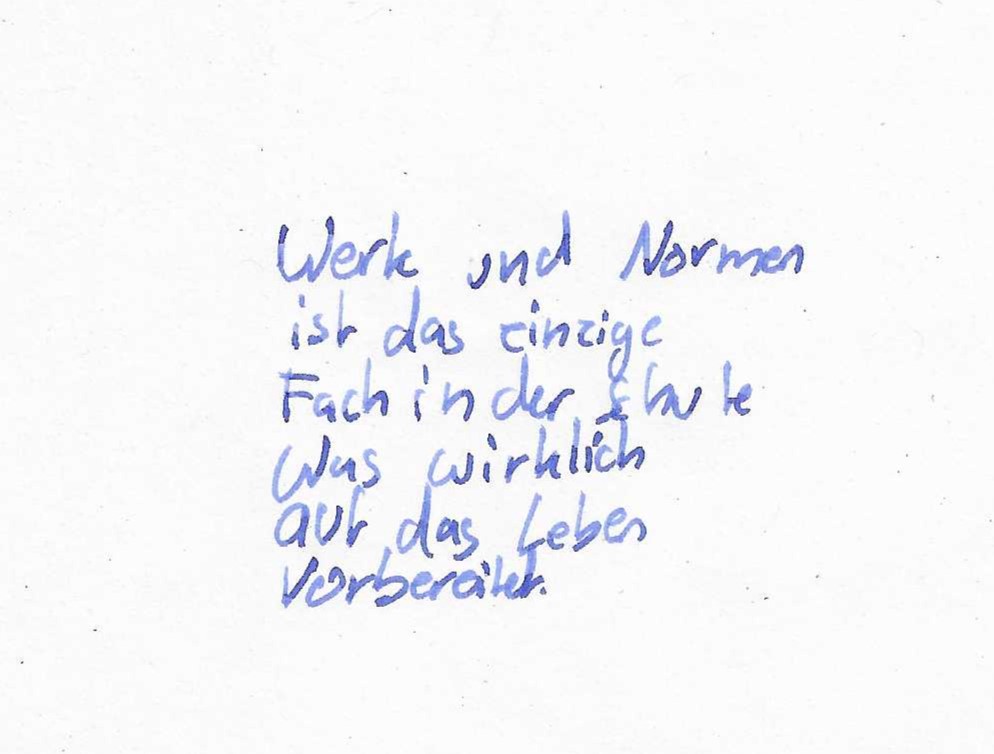 Werk und Normen
ist das einzige
Fach in der Schule
Was wirklich
auf das Leben
Vorbereitet.